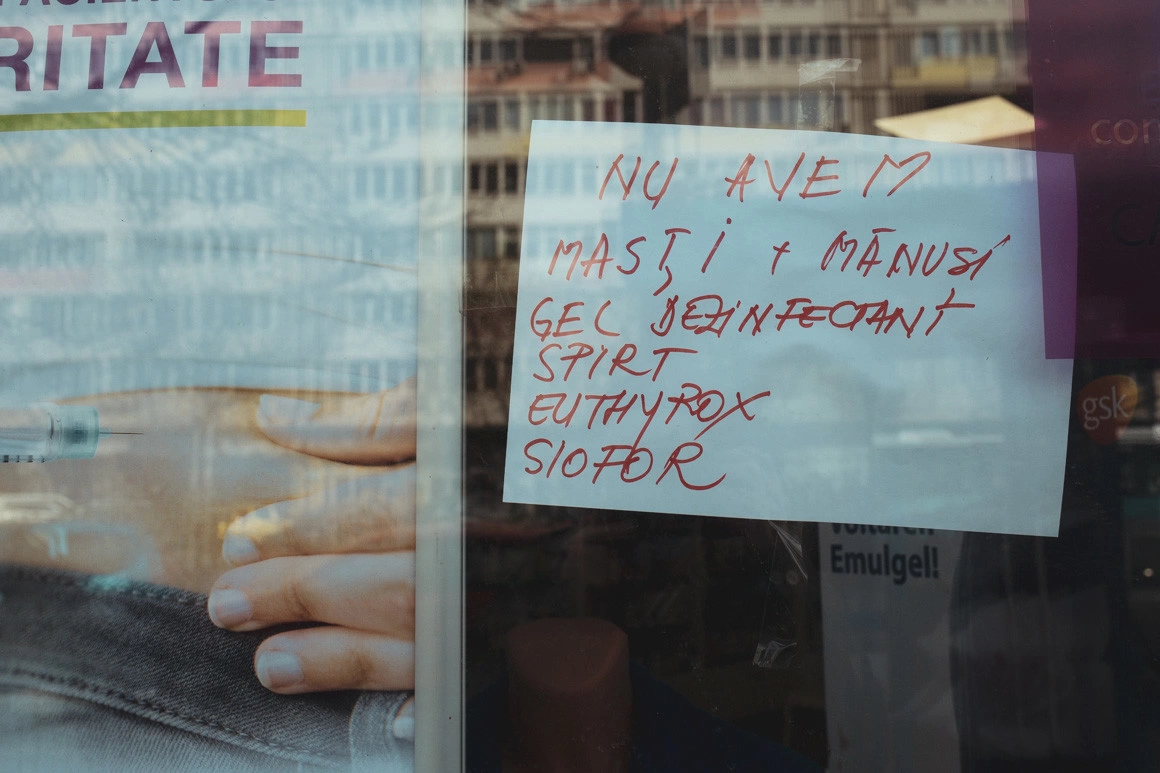 RITATE
NU AVEM
MASTI + MĀNUSI
GEL DEZINFECTANT
SPIRT
EUTHYROX
SIOFOR
gsk
Voltaren
Emulgel!